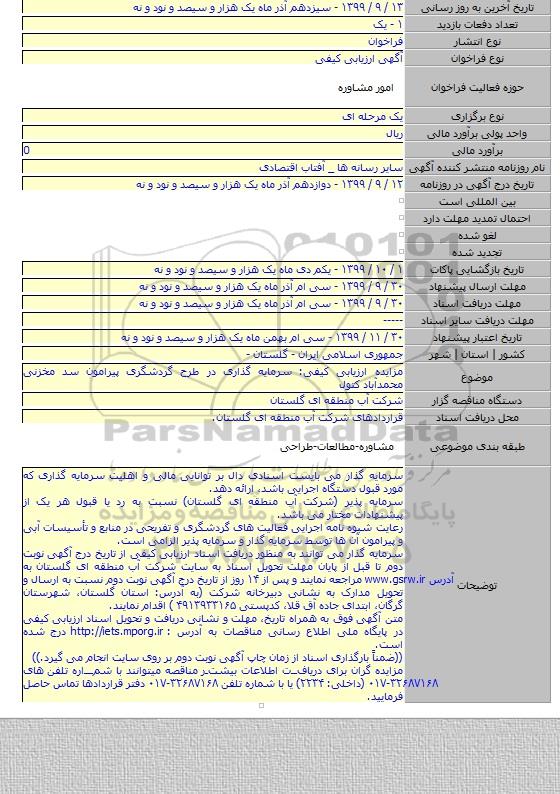 تاریخ آخرین به روز رسانی ۱۳ / ۹ / ۱۳۹۹ - سیزدهم آذر ماه یک هزار و سیصد و نود و نه
تعداد دفعات بازدید ۱ - یک
نوع انتشار فراخوان
نوع فراخوان آگهی ارزیابی کیفی
حوزه فعالیت فراخوان امور مشاوره
نوع برگزاری یک مرحله ای
واحد پولی برآورد مالی ریال
برآورد مالی 0
نام روزنامه منتشر کننده آگهی سایر رسانه ها _ آفتاب اقتصادی
تاریخ درج آگهی در روزنامه ۱۲ / ۹ / ۱۳۹۹ - دوازدهم آذر ماه یک هزار و سیصد و نود و نه
بین المللی است
احتمال تمدید مهلت دارد
لغو شده
تجدید شده
تاریخ بازگشایی پاکات ۱ / ۱۰ / ۱۳۹۹ - یکم دی ماه یک هزار و سیصد و نود و نه
مهلت ارسال پیشنهاد ۳۰ / ۹ / ۱۳۹۹ - سی ام آذر ماه یک هزار و سیصد و نود و نه
مهلت دریافت اسناد ۳۰ / ۹ / ۱۳۹۹ - سی ام آذر ماه یک هزار و سیصد و نود و نه
مهلت دریافت سایر اسناد -----
تاریخ اعتبار پیشنهاد ۳۰ / ۱۱ / ۱۳۹۹ - سی ام بهمن ماه یک هزار و سیصد و نود و نه
کشور | استان | شهر جمهوری اسلامی ایران - گلستان -
موضوع مزایده ارزیابی کیفی: سرمایه گذاری در طرح گردشگری پیرامون سد مخزنی
محمدآباد کتول
دستگاه مناقصه گزار شرکت آب منطقه ای گلستان
محل دریافت اسناد قراردادهای شرکت آب منطقه ای گلستان.
ParsNamadData
طبقه بندی موضوعی مشاوره-مطالعات-طراحی
توضیحات
سرمایه گذار می بایست اسنادی دال بر توانایی مالی و اهلیت سرمایه گذاری که
مورد قبول دستگاه اجرایی باشد، ارائه دهد.
سرمایه پذیر (شرکت آب منطقه ای گلستان) نسبت به رد یا قبول هر یک از
پیشنهادات مختار می باشد.
رعایت شیوه نامه اجرایی فعالیت های گردشگری و تفریحی در منابع و تأسیسات آبی
و پیرامون آن ها توسط سرمایه گذار و سرمایه پذیر الزامی است.
سرمایه گذار می توانند به منظور دریافت اسناد ارزیابی کیفی از تاریخ درج آگهی نوبت
دوم تا قبل از پایان مهلت تحویل اسناد به سایت شرکت آب منطقه ای گلستان به
آدرس www.gsrw.ir مراجعه نمایند و پس از ۱۴ روز از تاریخ درج آگهی نوبت دوم نسبت به ارسال و
تحویل مدارک به نشانی دبیرخانه شرکت (به آدرس: استان گلستان، شهرستان
گرگان، ابتدای جاده آق قلا، کدپستی ۴۹۱۳۹۳۳۱۶۵ ) اقدام نمایند.
متن آگهی فوق به همراه تاریخ، مهلت و نشانی دریافت و تحویل اسناد ارزیابی کیفی
در پایگاه ملی اطلاع رسانی مناقصات به آدرس : http://iets.mporg.ir درج شده
است.
((ضمناً بارگذاری اسناد از زمان چاپ آگهی نوبت دوم بر روی سایت انجام می گیرد.))
مزایده گران برای دریافـت اطلاعات بیشتـر مناقصه میتوانند با شمـــاره تلفن های
۰۱۷-۳۲۶۸۷۱۶۸ (داخلی: ۲۲۳۴) یا با شماره تلفن ۳۲۶۸۷۱۶۸-۰۱۷ دفتر قراردادها تماس حاصل
فرمایید.